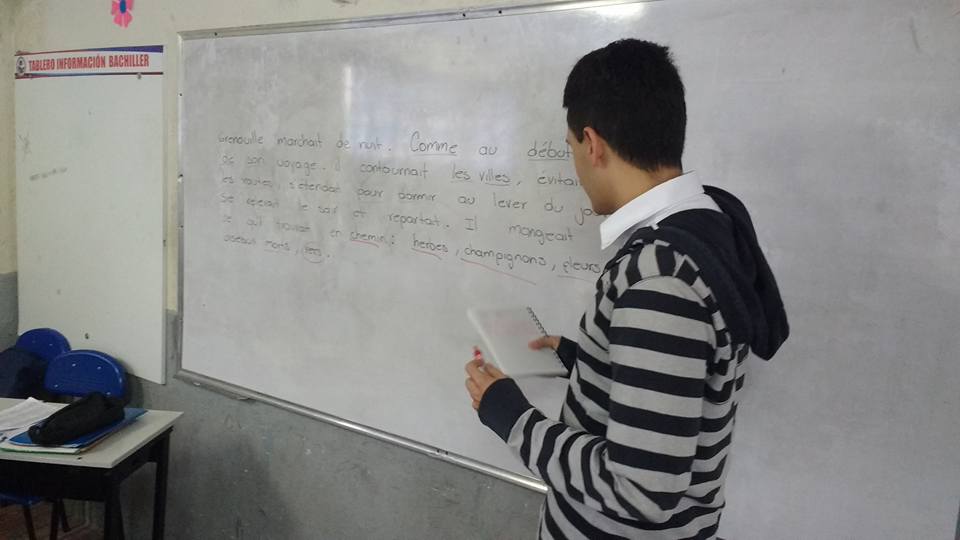 TABLERO INFORMACIÓN BACHILLER
Grenouille marchait de nuit. Comme au début
de son voyage. il contournait les villes, évitai
les routes, s'étendait pour dormir au lever du jo
se le soir et repartait. Il mangeait
ce qu'il trouvait en chemin: herbes, champignons, fleurs
oiseaux morts, vers.